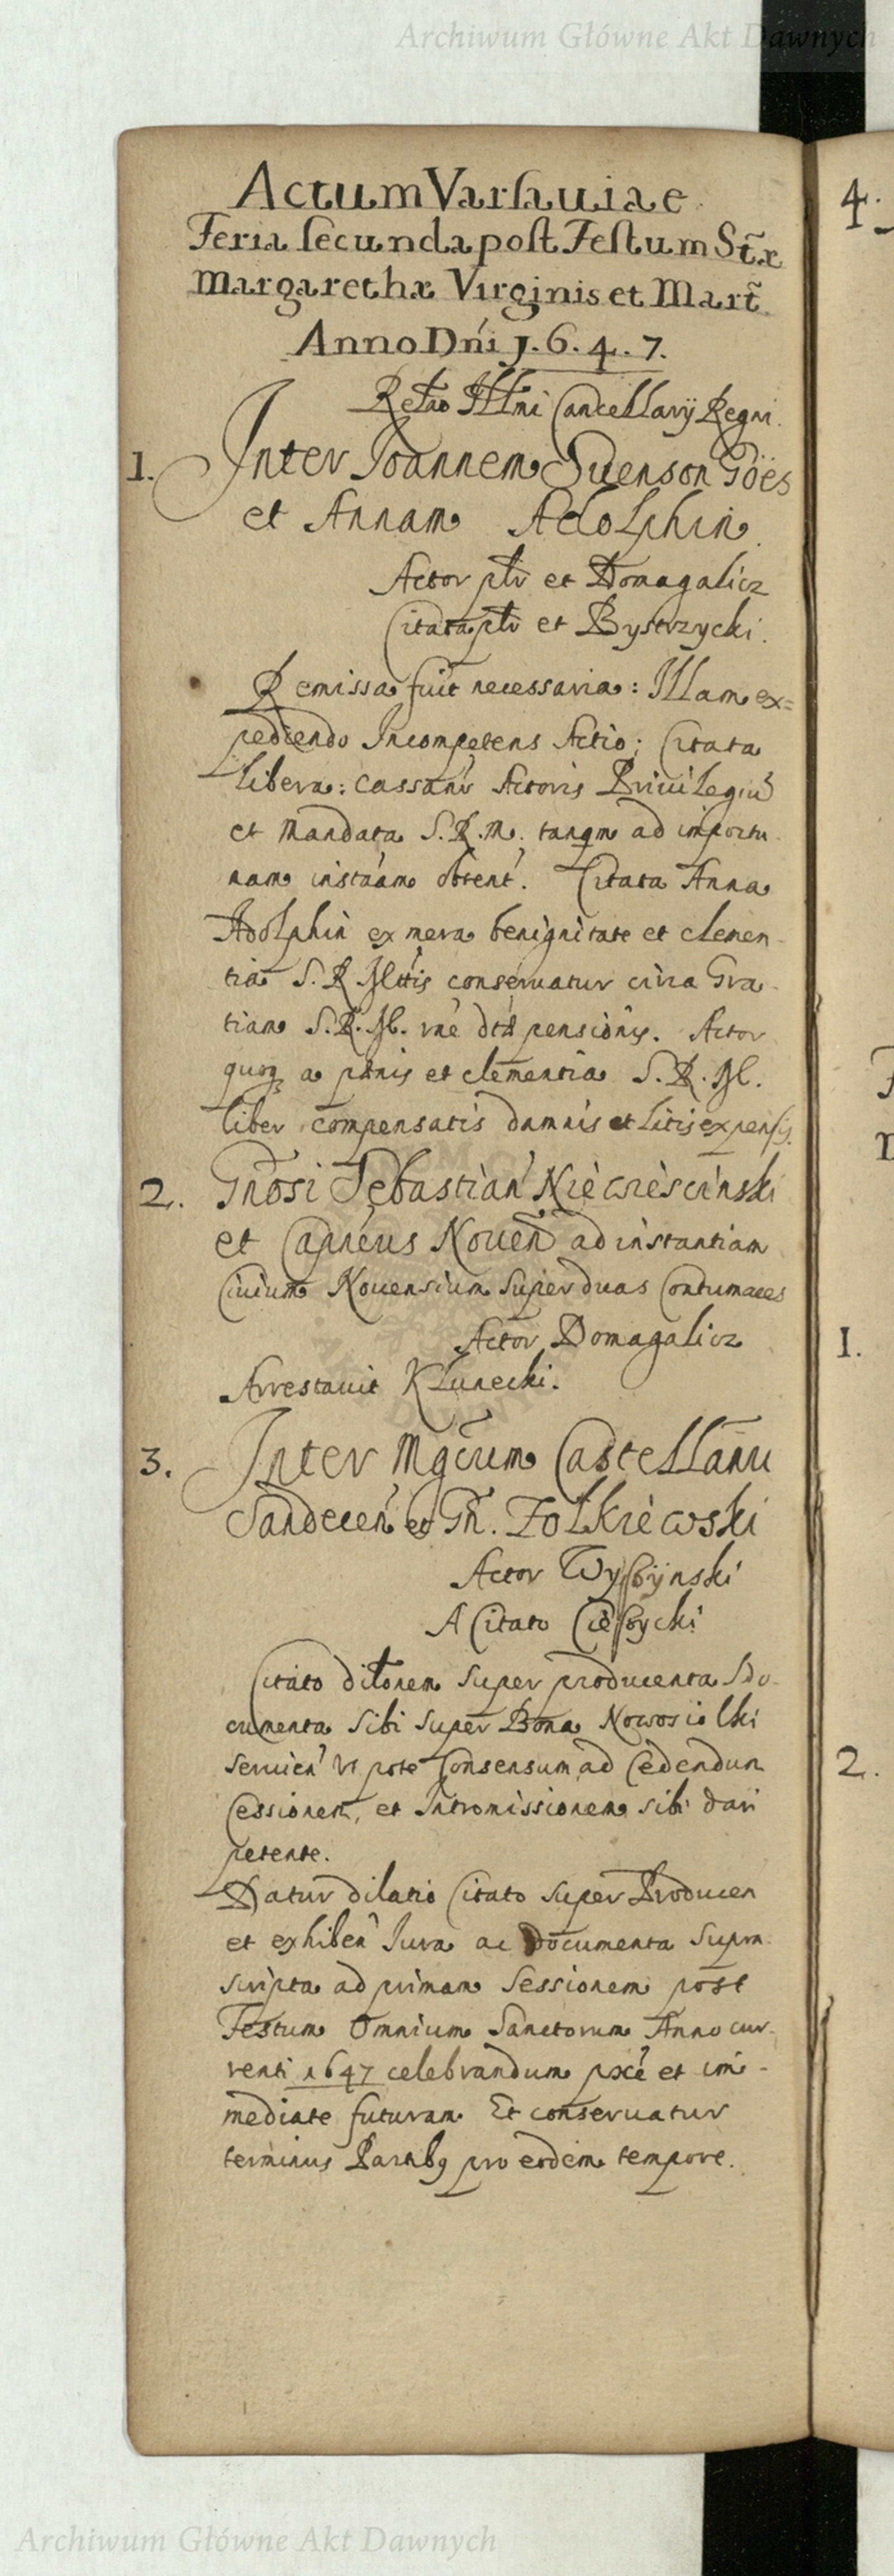 Archiwum Główne Akt Dawnych
Actum Varsauiae
Feria secunda post Festum Stæ
Margarethæ Virginis et Mart̃
Anno Dñi 1.6.4.7.
4.
Relao Illmi Cancellarij Regni.
1. Inter Joannem Suenson Göes
et Annam Adolphin.
Actor ptr et Domagalicz
Citata ptr et Bystrzycki.
Remissa fuit necessaria: Illam ex=
pediendo Incompetens Actio; Citata
libera: cassantr Actoris Priuilegiũ
et Mandata S.R.M. tanqm ad importu
nam instãam obtent. Citata Anna
Adolphin ex mera benignitate et clemen
tia S.R.Mttis conseruatur circa Gra
tiam S.R.M. pensionis. Actor
quoq a pænis et clementia S.R.M.
liber compensatis damnis et Litis expensis.
2. Gnosi Sebastian Niewiescinski
et Nouen ad instantiam
Ciuium Nouensium super duas Contumaces
Actor Domagalicz
Arrestauit Klunecki.
1.
3. Inter Mgcum Castellanũ
Sandecen et Gn. Zolkiewski
Actor Wyssynski
A Citato Ciessycki
Citato dilonem super producenta Do
cumenta sibi super Bona Nowosiolki
seruien vt pote Consensum ad Cedendum
Cessionem, et Intromissionem sibi dari
petente.
2.
Datur dilatio Citato super Producen
et exhiben Iura ac Documenta supra
scripta ad primam Sessionem post
Festum Omnium Sanctorum Anno cur
renti 1647 celebrandum pxe et im-
mediate futuram. Et conseruatur
terminus Partibq pro eodem tempore.
Archiwum Główne Akt Dawnych